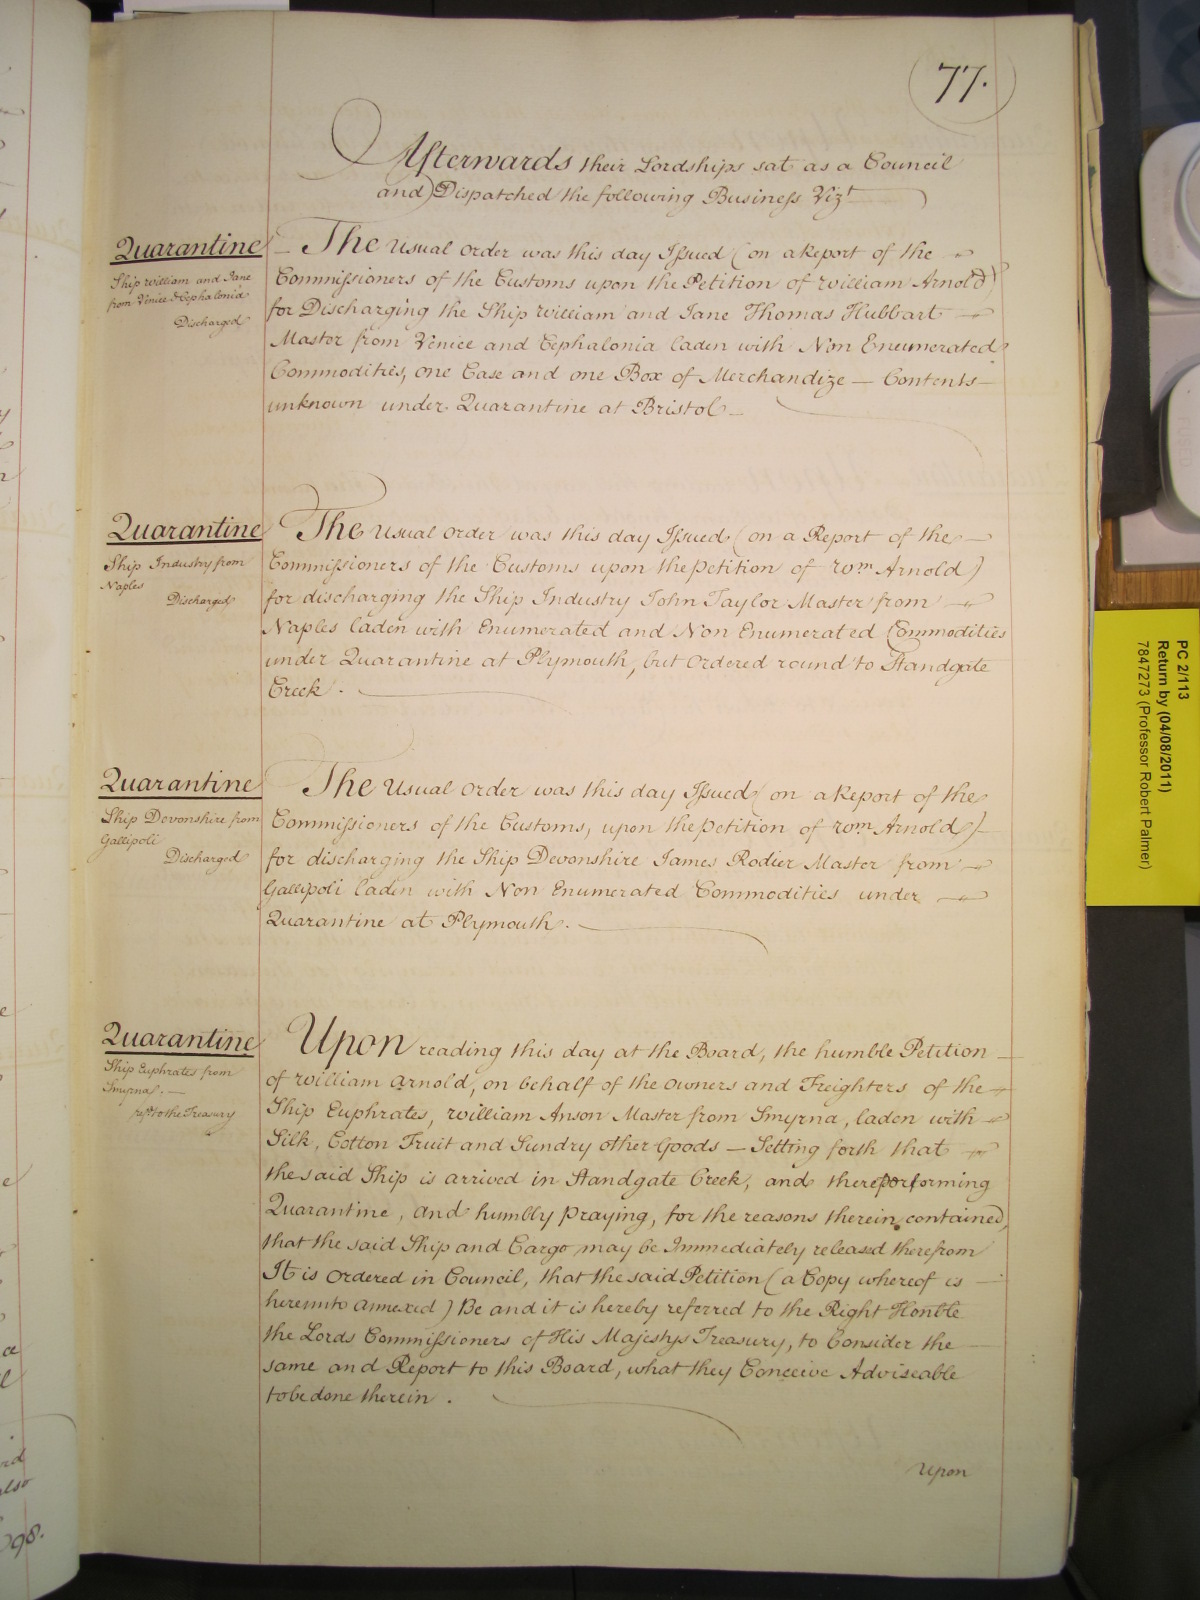 77.
Afterwards their Lordships sat as a Council
and Dispatched the following Business Vizt
Quarantine
Ship William and Jane
from Venice & Cephalonia
Discharged
The Usual Order was this day Issued (on a Report of the
Commissioners of the Customs upon the Petition of William Arnold)
for Discharging the Ship William and Jane Thomas Hubbart
Master from Venice and Cephalonia laden with Non Enumerated
Commodities, one Case and one Box of Merchandize — Contents
unknown under Quarantine at Bristol —
Quarantine
Ship Industry from
Naples
Discharged
The Usual Order was this day Issued (on a Report of the
Commissioners of the Customs upon the Petition of Wm Arnold)
for discharging the Ship Industry John Taylor Master from
Naples laden with Enumerated and Non Enumerated Commodities
under Quarantine at Plymouth, but Ordered round to Standgate
Creek.
Quarantine
Ship Devonshire from
Gallipoli
Discharged
The Usual Order was this day Issued (on a Report of the
Commissioners of the Customs, upon the Petition of Wm Arnold)
for discharging the Ship Devonshire James Rodier Master from
Gallipoli laden with Non Enumerated Commodities under
Quarantine at Plymouth.
Quarantine
Ship Euphrates from
Smyrna. —
reft to the Treasury
Upon reading this day at the Board, the humble Petition
of William Arnold, on behalf of the Owners and Freighters of the
Ship Euphrates, William Anson Master from Smyrna, laden with
Silk, Cotton Fruit and Sundry other Goods — Setting forth that
the said Ship is arrived in Standgate Creek, and there performing
Quarantine, and humbly praying, for the reasons therein contained,
that the said Ship and Cargo may be Immediately released therefrom
It is Ordered in Council, that the said Petition (a Copy whereof is
hereunto annexed) Be and it is hereby referred to the Right Honble
the Lords Commissioners of His Majestys Treasury, to Consider the
same and Report to this Board, what they Conceive Adviseable
to be done therein.
Upon
PC 2/113
Return by (04/08/2011)
7847273 (Professor Robert Palmer)